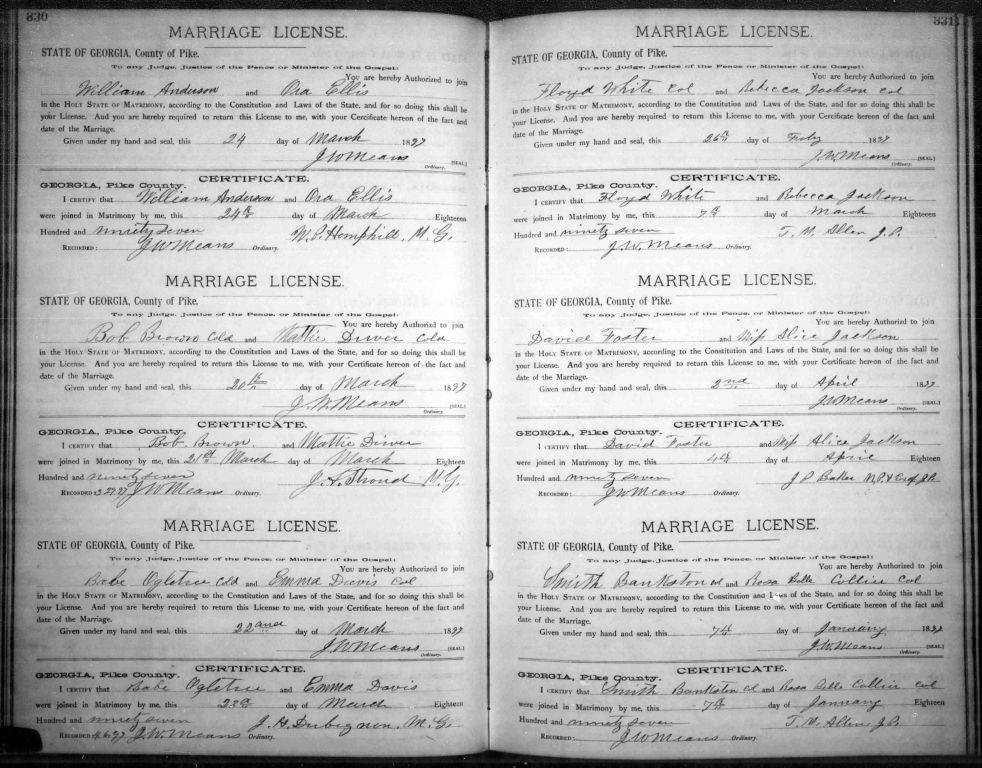 330
MARRIAGE LICENSE.
STATE OF GEORGIA, County of Pike.
To any Judge, Justice of the Peace or Minister of the Gospel:
You are hereby Authorized to join
William Anderson and Ora Ellis
in the HOLY STATE OF MATRIMONY, according to the Constitution and Laws of the State, and for so doing this shall be
your License. And you are hereby required to return this License to me, with your Certificate hereon of the fact and
date of the Marriage.
Given under my hand and seal, this 24 day of March 1897
J. W. Means [SEAL.]
Ordinary.
CERTIFICATE.
GEORGIA, Pike County.
I CERTIFY that William Anderson and Ora Ellis
were joined in Matrimony by me, this 24th day of March Eighteen
Hundred and ninety seven W. P. Hemphill, M. G.
RECORDED: J W Means Ordinary.
MARRIAGE LICENSE.
STATE OF GEORGIA, County of Pike.
To any Judge, Justice of the Peace, or Minister of the Gospel:
You are hereby Authorized to join
Bob Brown Cold and Mattie Driver Cold
in the HOLY STATE OF MATRIMONY, according to the Constitution and Laws of the State, and for so doing this shall be
your License. And you are hereby required to return this License to me, with your Certificate hereon of the fact and
date of the Marriage.
Given under my hand and seal, this 20th day of March 1897
J. W. Means [SEAL.]
Ordinary.
CERTIFICATE.
GEORGIA, Pike County.
I CERTIFY that Bob Brown. and Mattie Driver
were joined in Matrimony by me, this 21st March day of March Eighteen
Hundred and ninety seven J. H. Stroud M. G.
RECORDED J W Means Ordinary.
MARRIAGE LICENSE.
STATE OF GEORGIA, County of Pike.
To any Judge, Justice of the Peace, or Minister of the Gospel:
You are hereby Authorized to join
Babe Ogletree Cold and Emma Davis Col
in the HOLY STATE OF MATRIMONY, according to the Constitution and Laws of the State, and for so doing this shall be
your License. And you are hereby required to return this License to me, with your Certificate hereon of the fact and
date of the Marriage.
Given under my hand and seal, this 22nd day of March 1897
J. W. Means [SEAL.]
Ordinary.
CERTIFICATE.
GEORGIA, Pike County.
I CERTIFY that Babe Ogletree and Emma Davis
were joined in Matrimony by me, this 23rd day of March Eighteen
Hundred and ninety seven J. H. Dubignon, M. G.
RECORDED 4.6.97 J. W. Means Ordinary.
331
MARRIAGE LICENSE.
STATE OF GEORGIA, County of Pike.
To any Judge, Justice of the Peace or Minister of the Gospel:
You are hereby Authorized to join
Floyd White Col and Rebecca Jackson Col
in the HOLY STATE OF MATRIMONY, according to the Constitution and Laws of the State, and for so doing this shall be
your License. And you are hereby required to return this License to me, with your Certificate hereon of the fact and
date of the Marriage.
Given under my hand and seal, this 26th day of Feby 1897
J. W. Means [SEAL.]
Ordinary.
CERTIFICATE.
GEORGIA, Pike County.
I CERTIFY that Floyd White and Rebecca Jackson
were joined in Matrimony by me, this 7th day of March Eighteen
Hundred and ninety seven T. M. Allen J. P.
RECORDED: J. W. Means Ordinary.
MARRIAGE LICENSE.
STATE OF GEORGIA, County of Pike.
To any Judge, Justice of the Peace, or Minister of the Gospel:
You are hereby Authorized to join
David Foster and Miss Alice Jackson
in the HOLY STATE OF MATRIMONY, according to the Constitution and Laws of the State, and for so doing this shall be
your License. And you are hereby required to return this License to me, with your Certificate hereon of the fact and
date of the Marriage.
Given under my hand and seal, this 2nd day of April 1897
J. W. Means [SEAL.]
Ordinary.
CERTIFICATE.
GEORGIA, Pike County.
I CERTIFY that David Foster and Miss Alice Jackson
were joined in Matrimony by me, this 4th day of April Eighteen
Hundred and ninety seven J P Baker N. P. & Exof J. P.
RECORDED: J W Means Ordinary.
MARRIAGE LICENSE.
STATE OF GEORGIA, County of Pike.
To any Judge, Justice of the Peace, or Minister of the Gospel:
You are hereby Authorized to join
Smith Bankston Cd and Rosa Belle Collier Col
in the HOLY STATE OF MATRIMONY, according to the Constitution and Laws of the State, and for so doing this shall be
your License. And you are hereby required to return this License to me, with your Certificate hereon of the fact and
date of the Marriage.
Given under my hand and seal, this 7th day of January 1897
J. W. Means [SEAL.]
Ordinary.
CERTIFICATE.
GEORGIA, Pike County.
I CERTIFY that Smith Bankston Cd and Rosa Belle Collier Col
were joined in Matrimony by me, this 7th day of January Eighteen
Hundred and ninety seven T. M. Allen J. P.
RECORDED: J W Means Ordinary.